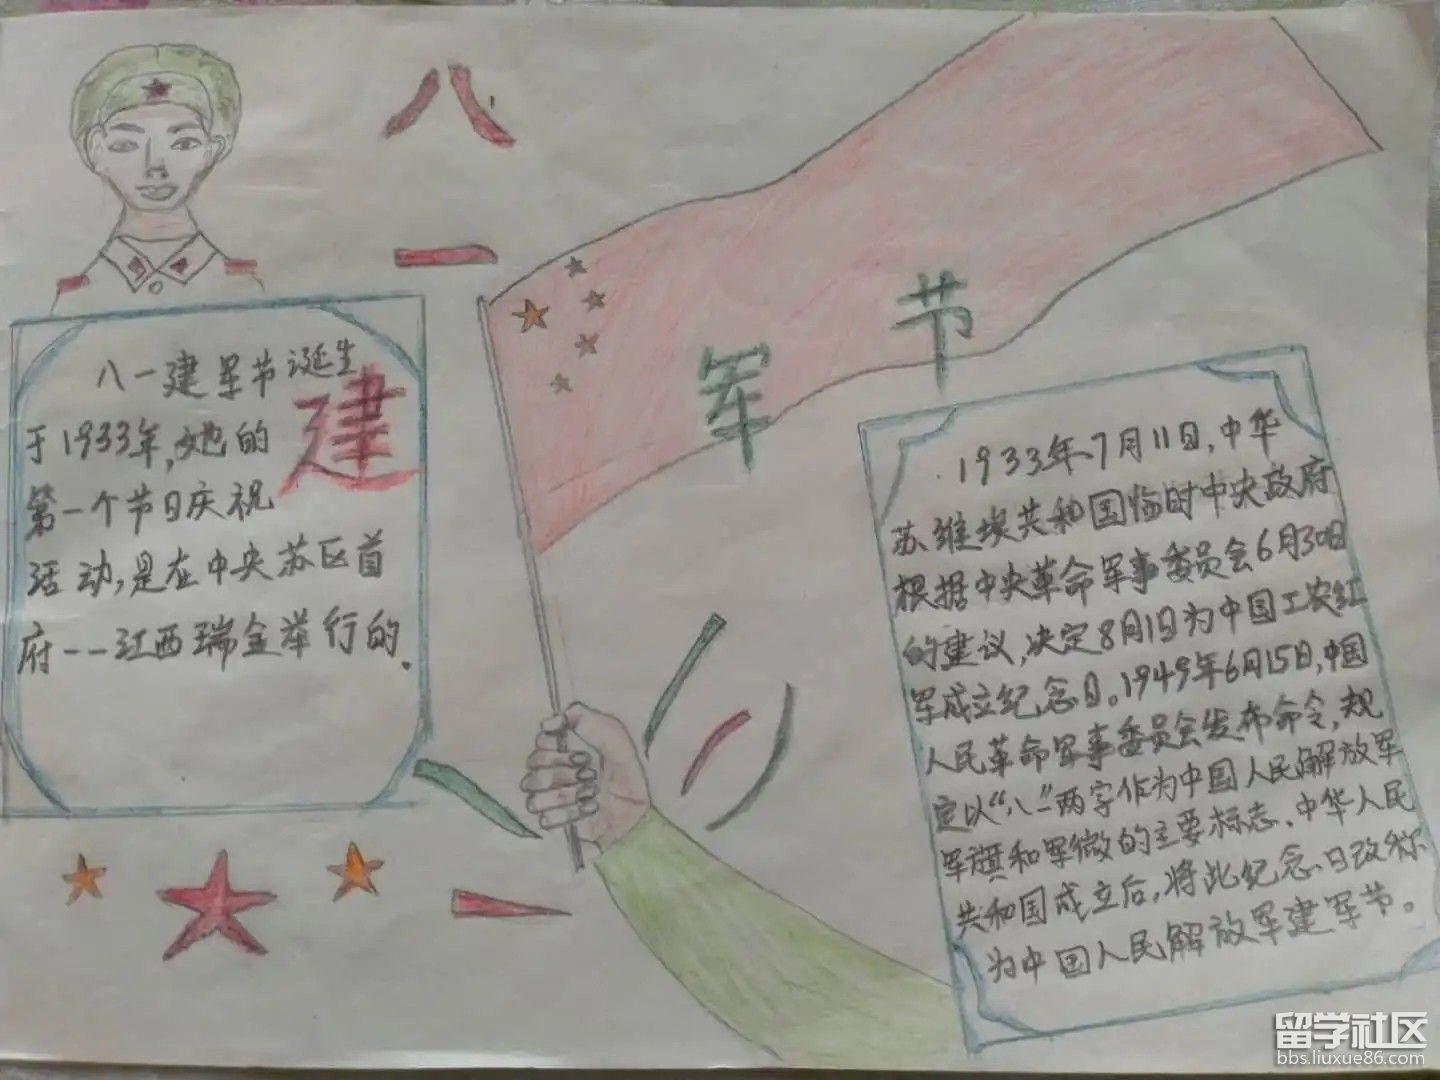 八
一
建
军
节
八一建军节诞生
于1933年,她的
第一个节日庆祝
活动,是在中央苏区首
府--江西瑞金举行的.
1933年7月11日,中华
苏维埃共和国临时中央政府
根据中央革命军事委员会6月30日
的建议,决定8月1日为中国工农红
军成立纪念日。1949年6月15日,中国
人民革命军事委员会发布命令,规
定以“八一”两字作为中国人民解放军
军旗和军徽的主要标志.中华人民
共和国成立后,将此纪念日改称
为中国人民解放军建军节。
留学社区
bbs.liuxue86.com